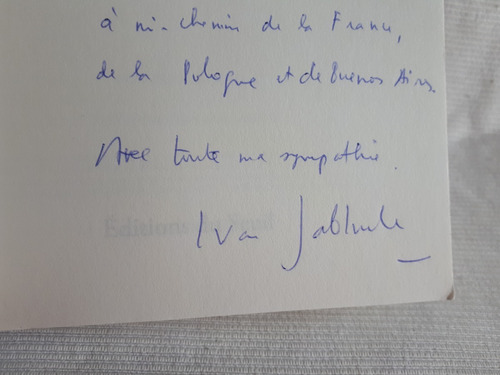 à mi-chemin de la France,
de la Pologne et de Buenos Aires.
Avec toute ma sympathie.
Ivan Jablonka
Éditions du Seuil